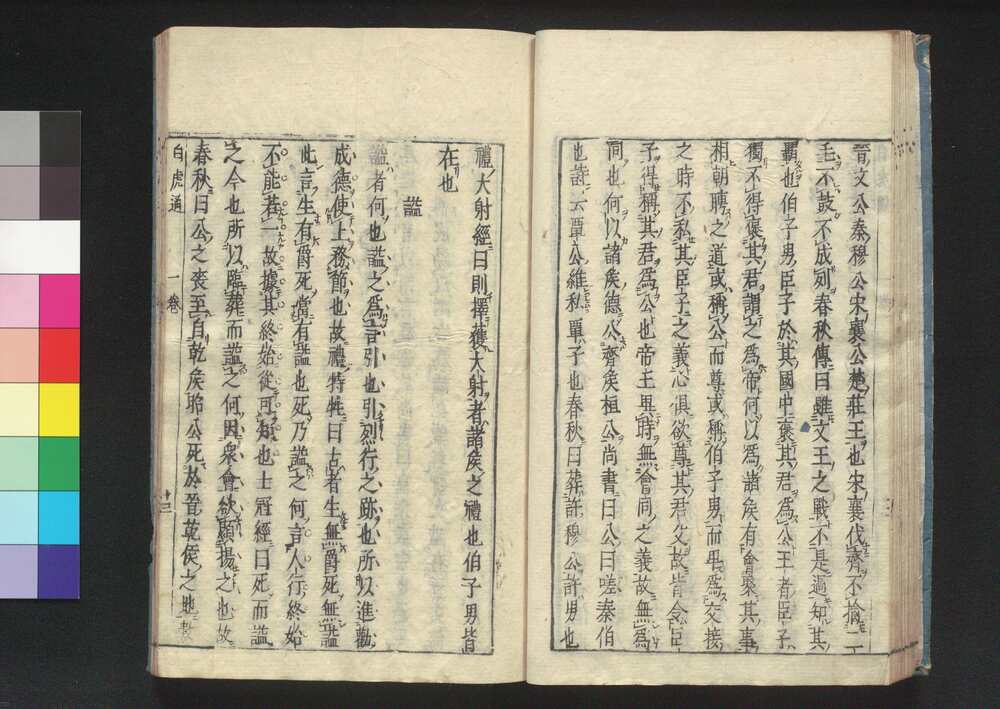 晉文公秦穆公宋襄公楚莊王也宋襄伐齊不擒二
毛不鼓不成列春秋傳曰雖文王之戰不是過知其
霸也伯子男臣子於其國中褒其君爲公王者臣子
獨不得褒其君謂之爲帝何以爲諸矦有會聚其事
相朝聘之道或稱公而尊或稱伯子男而卑爲交接
之時不私其臣子之義心俱欲尊其君父故皆令臣
子得稱其君爲公也帝王異時無會同之義故無爲
同也何以諸矦德公齊矦桓公尚書曰公曰嗟秦伯
也詩云覃公維私覃子也春秋曰葬許穆公許男也
禮大射經曰則擇獲大射者諸矦之禮也伯子男皆
在也
謚
謚者何也謚之爲言引也引烈行之跡也所以進勸
成德使上務節也故禮特牲曰古者生無爵死無謚
此言生有爵死當有謚也死乃謚之何言人行終始
不能若一故據其終始從可知也士冠經曰死而謚
之今也所以臨葬而謚之何因衆會欲顯揚之也故
春秋曰公之喪至自乾矦昭公死於晉乾侯之地數
白虎通
一卷
十三